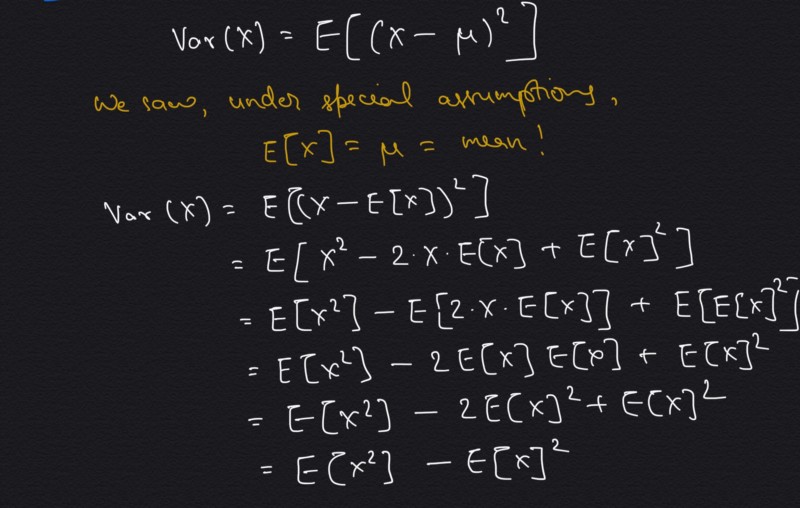 Var(X) = E[(X - μ)²]
We saw, under special assumptions,
E[X] = μ = mean!
Var(X) = E[(X - E[X])²]
= E[X² - 2·X·E[X] + E[X]²]
= E[X²] - E[2·X·E[X]] + E[E[X]²]
= E[X²] - 2E[X]E[X] + E[X]²
= E[X²] - 2E[X]² + E[X]²
= E[X²] - E[X]²